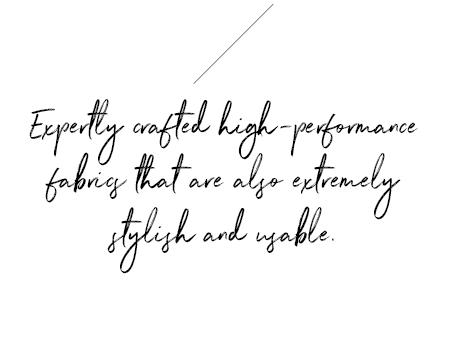 Expertly crafted high-performance
fabrics that are also extremely
stylish and usable.